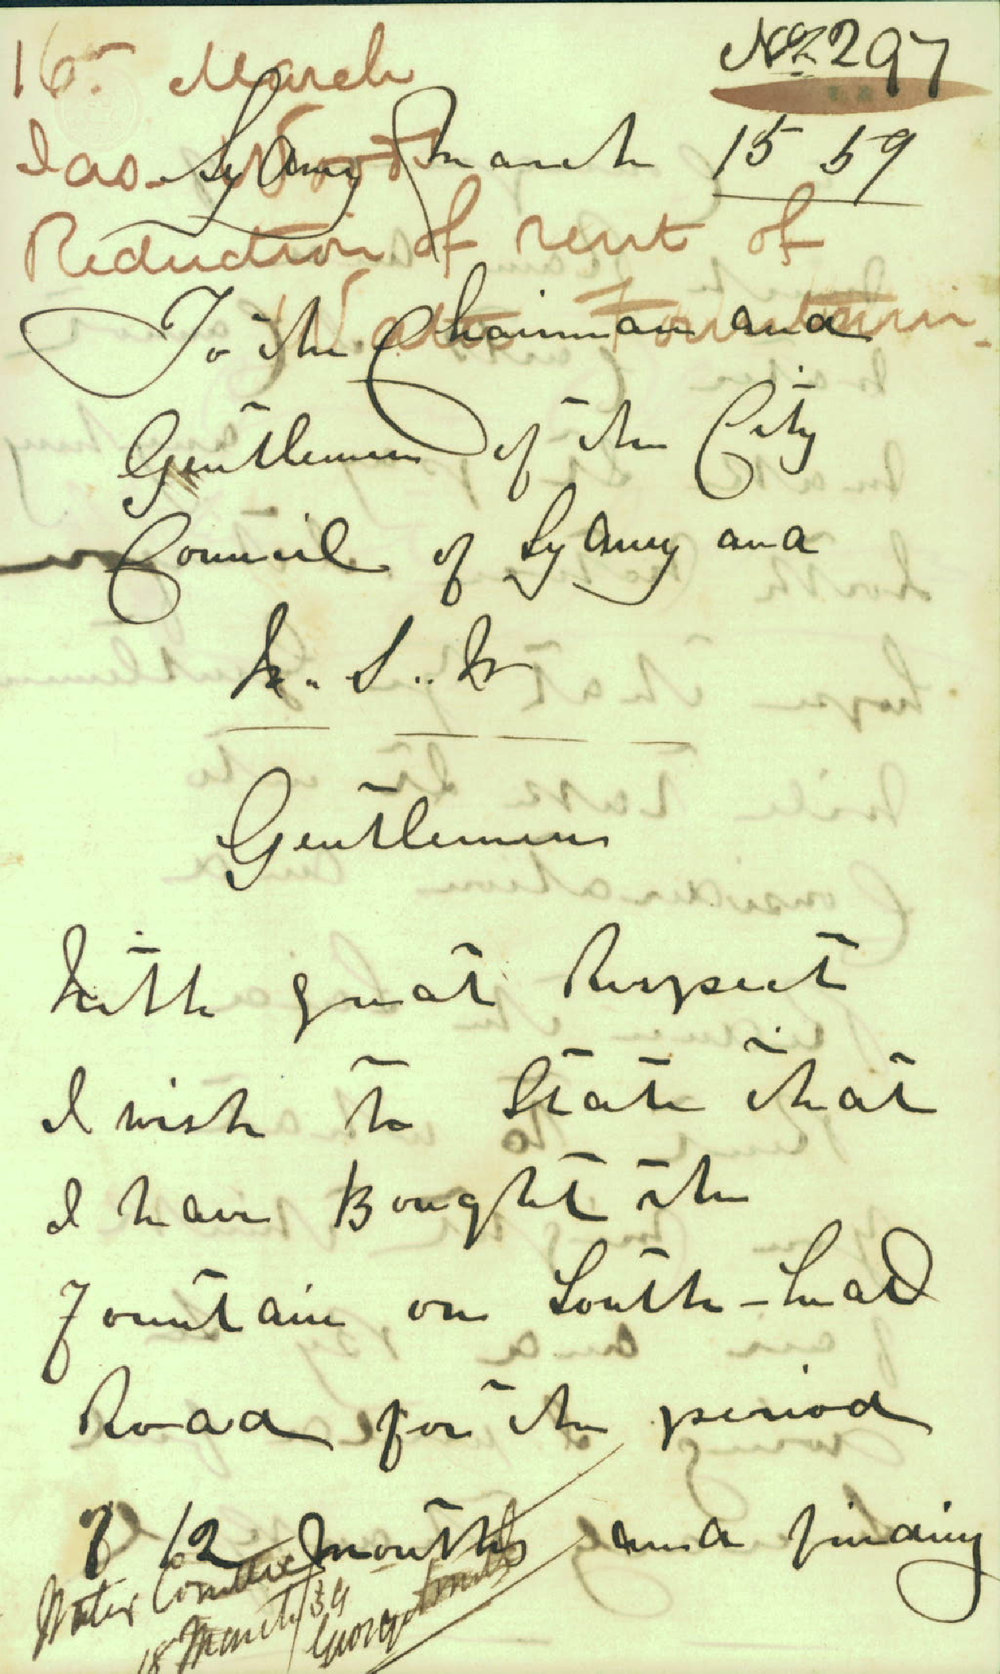 No 297
16th March
Sydney March 15 59
Jas.
Reduction of rent of
Water Fountain.
To the Chairman and
Gentlemen of the City
Council of Sydney and
N. S. W
Gentlemen
With great Respect
I wish to State that
I have Bought the
Fountain on South-head
Road for the period
of 12 months and finding
Water Committee
18 March/59
George Smith